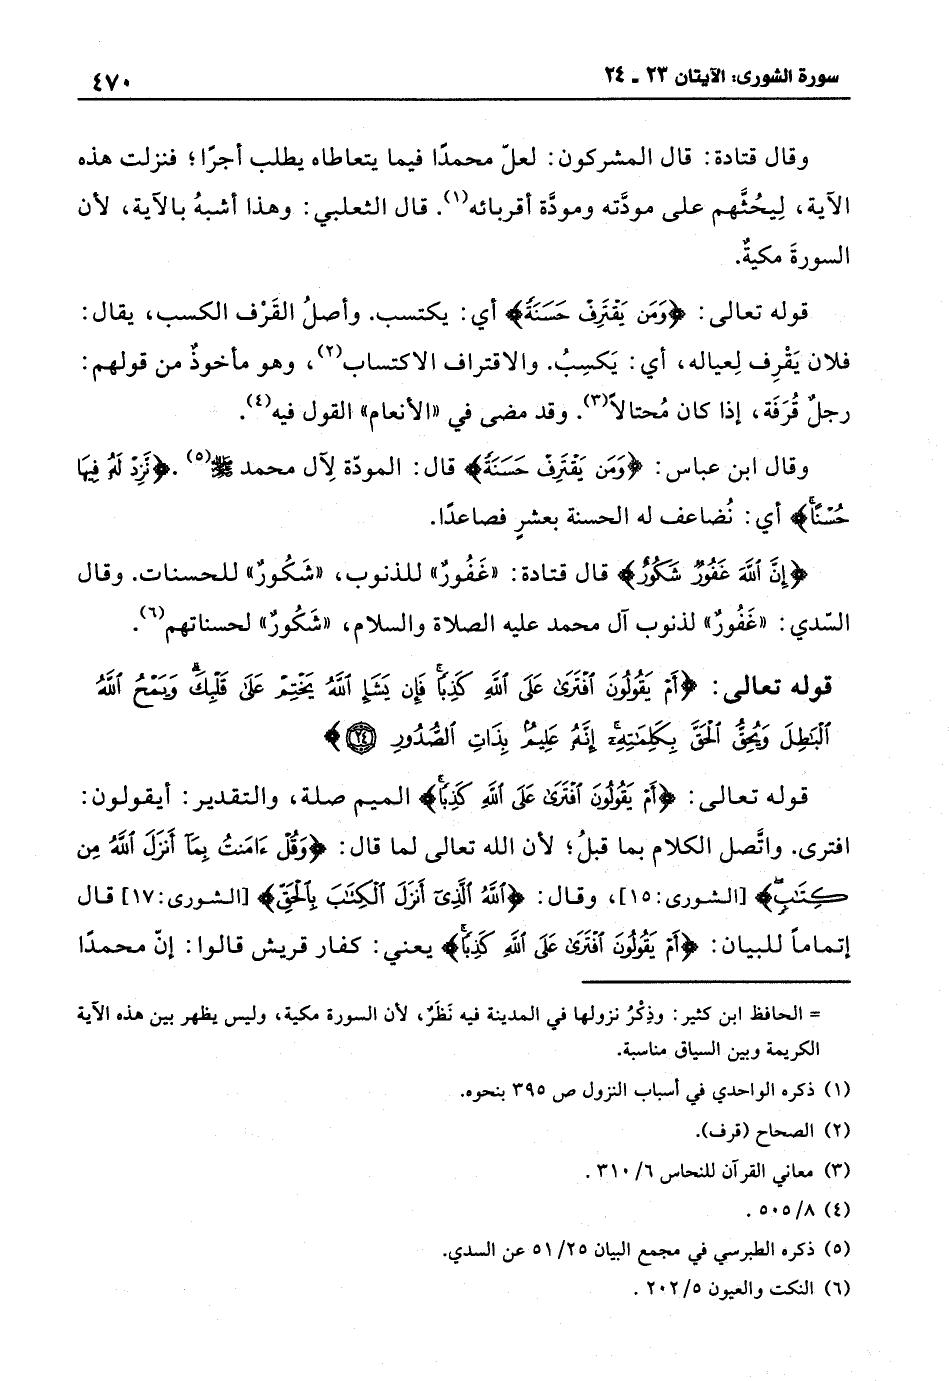 سورة الشورى: الآيتان ٢٣ ـ ٢٤
٤٧٠
وقال قتادة: قال المشركون: لعلّ محمدًا فيما يتعاطاه يطلب أجرًا؛ فنزلت هذه
الآية، لِيحُثَّهم على مودَّته ومودَّة أقربائه(١). قال الثعلبي: وهذا أشبهُ بالآية، لأن
السورةَ مكيةٌ.
قوله تعالى: ﴿وَمَن يَقْتَرِفْ حَسَنَةً﴾ أي: يكتسب. وأصلُ القَرْف الكسب، يقال:
فلان يَقْرِف لِعياله، أي: يَكسِبُ. والاقتراف الاكتساب(٢)، وهو مأخوذٌ من قولهم:
رجلٌ قُرَفَة، إذا كان مُحتالاً(٣). وقد مضى في «الأنعام» القول فيه(٤).
وقال ابن عباس: ﴿وَمَن يَقْتَرِفْ حَسَنَةً﴾ قال: المودّة لِآل محمد ﷺ(٥). ﴿نَّزِدْ لَهُۥ فِيهَا
حُسْنًاۚ﴾ أي: نُضاعف له الحسنة بعشرٍ فصاعدًا.
﴿إِنَّ ٱللَّهَ غَفُورٌ شَكُورٌ﴾ قال قتادة: «غَفُورٌ» للذنوب، «شَكُورٌ» للحسنات. وقال
السّدي: «غَفُورٌ» لذنوب آل محمد عليه الصلاة والسلام، «شَكُورٌ» لحسناتهم(٦).
قوله تعالى: ﴿أَمْ يَقُولُونَ ٱفْتَرَىٰ عَلَى ٱللَّهِ كَذِبًاۖ فَإِن يَشَإِ ٱللَّهُ يَخْتِمْ عَلَىٰ قَلْبِكَۗ وَيَمْحُ ٱللَّهُ
ٱلْبَٰطِلَ وَيُحِقُّ ٱلْحَقَّ بِكَلِمَٰتِهِۦٓۚ إِنَّهُۥ عَلِيمٌۢ بِذَاتِ ٱلصُّدُورِ ٢٤﴾
قوله تعالى: ﴿أَمْ يَقُولُونَ ٱفْتَرَىٰ عَلَى ٱللَّهِ كَذِبًاۖ﴾ الميم صلة، والتقدير: أيقولون:
افترى. واتَّصل الكلام بما قبلُ؛ لأن الله تعالى لما قال: ﴿وَقُلْ ءَامَنتُ بِمَآ أَنزَلَ ٱللَّهُ مِن
كِتَٰبٍۖ﴾ [الشورى:١٥]، وقال: ﴿ٱللَّهُ ٱلَّذِىٓ أَنزَلَ ٱلْكِتَٰبَ بِٱلْحَقِّ﴾ [الشورى:١٧] قال
إتماماً للبيان: ﴿أَمْ يَقُولُونَ ٱفْتَرَىٰ عَلَى ٱللَّهِ كَذِبًاۖ﴾ يعني: كفار قريش قالوا: إنّ محمدًا
= الحافظ ابن كثير: وذِكْرُ نزولها في المدينة فيه نَظَرٌ، لأن السورة مكية، وليس يظهر بين هذه الآية
الكريمة وبين السياق مناسبة.
(١) ذكره الواحدي في أسباب النزول ص ٣٩٥ بنحوه.
(٢) الصحاح (قرف).
(٣) معاني القرآن للنحاس ٣١٠/٦ .
(٤) ٥٠٥/٨ .
(٥) ذكره الطبرسي في مجمع البيان ٥١/٢٥ عن السدي.
(٦) النكت والعيون ٢٠٢/٥ .